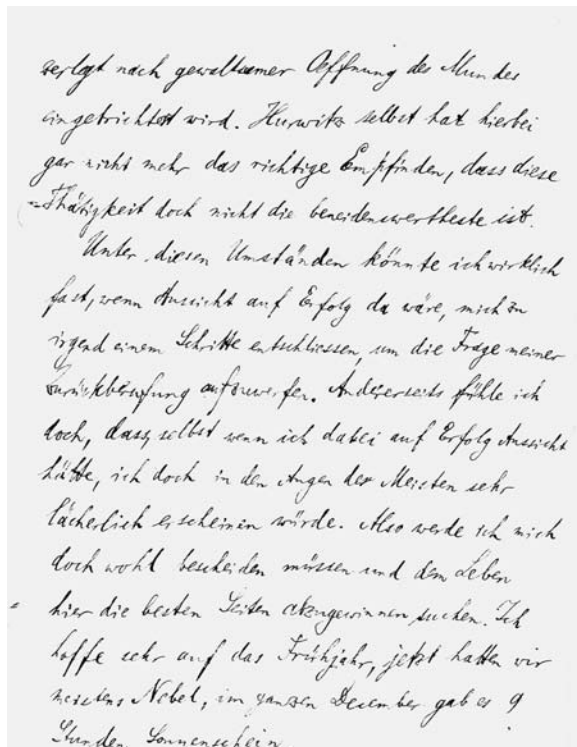 zerlegt nach gewaltsamer Oeffnung des Mundes
eingetrichtert wird. Hurwitz selbst hat hierbei
gar nicht mehr das richtige Empfinden, dass diese
Thätigkeit doch nicht die beneidenswertheste ist.
Unter diesen Umständen könnte ich wirklich
fast, wenn Aussicht auf Erfolg da wäre, mich zu
irgend einem Schritte entschliessen, um die Frage meiner
Zurückberufung aufzuwerfen. Andererseits fühle ich
doch, dass, selbst wenn ich dabei auf Erfolg Aussicht
hätte, ich doch in den Augen der Meisten sehr
lächerlich erscheinen würde. Also werde ich mich
doch wohl bescheiden müssen und dem Leben
hier die besten Seiten abzugewinnen suchen. Ich
hoffe sehr auf das Frühjahr, jetzt hatten wir
meistens Nebel, im ganzen December gab es 9
Stunden Sonnenschein